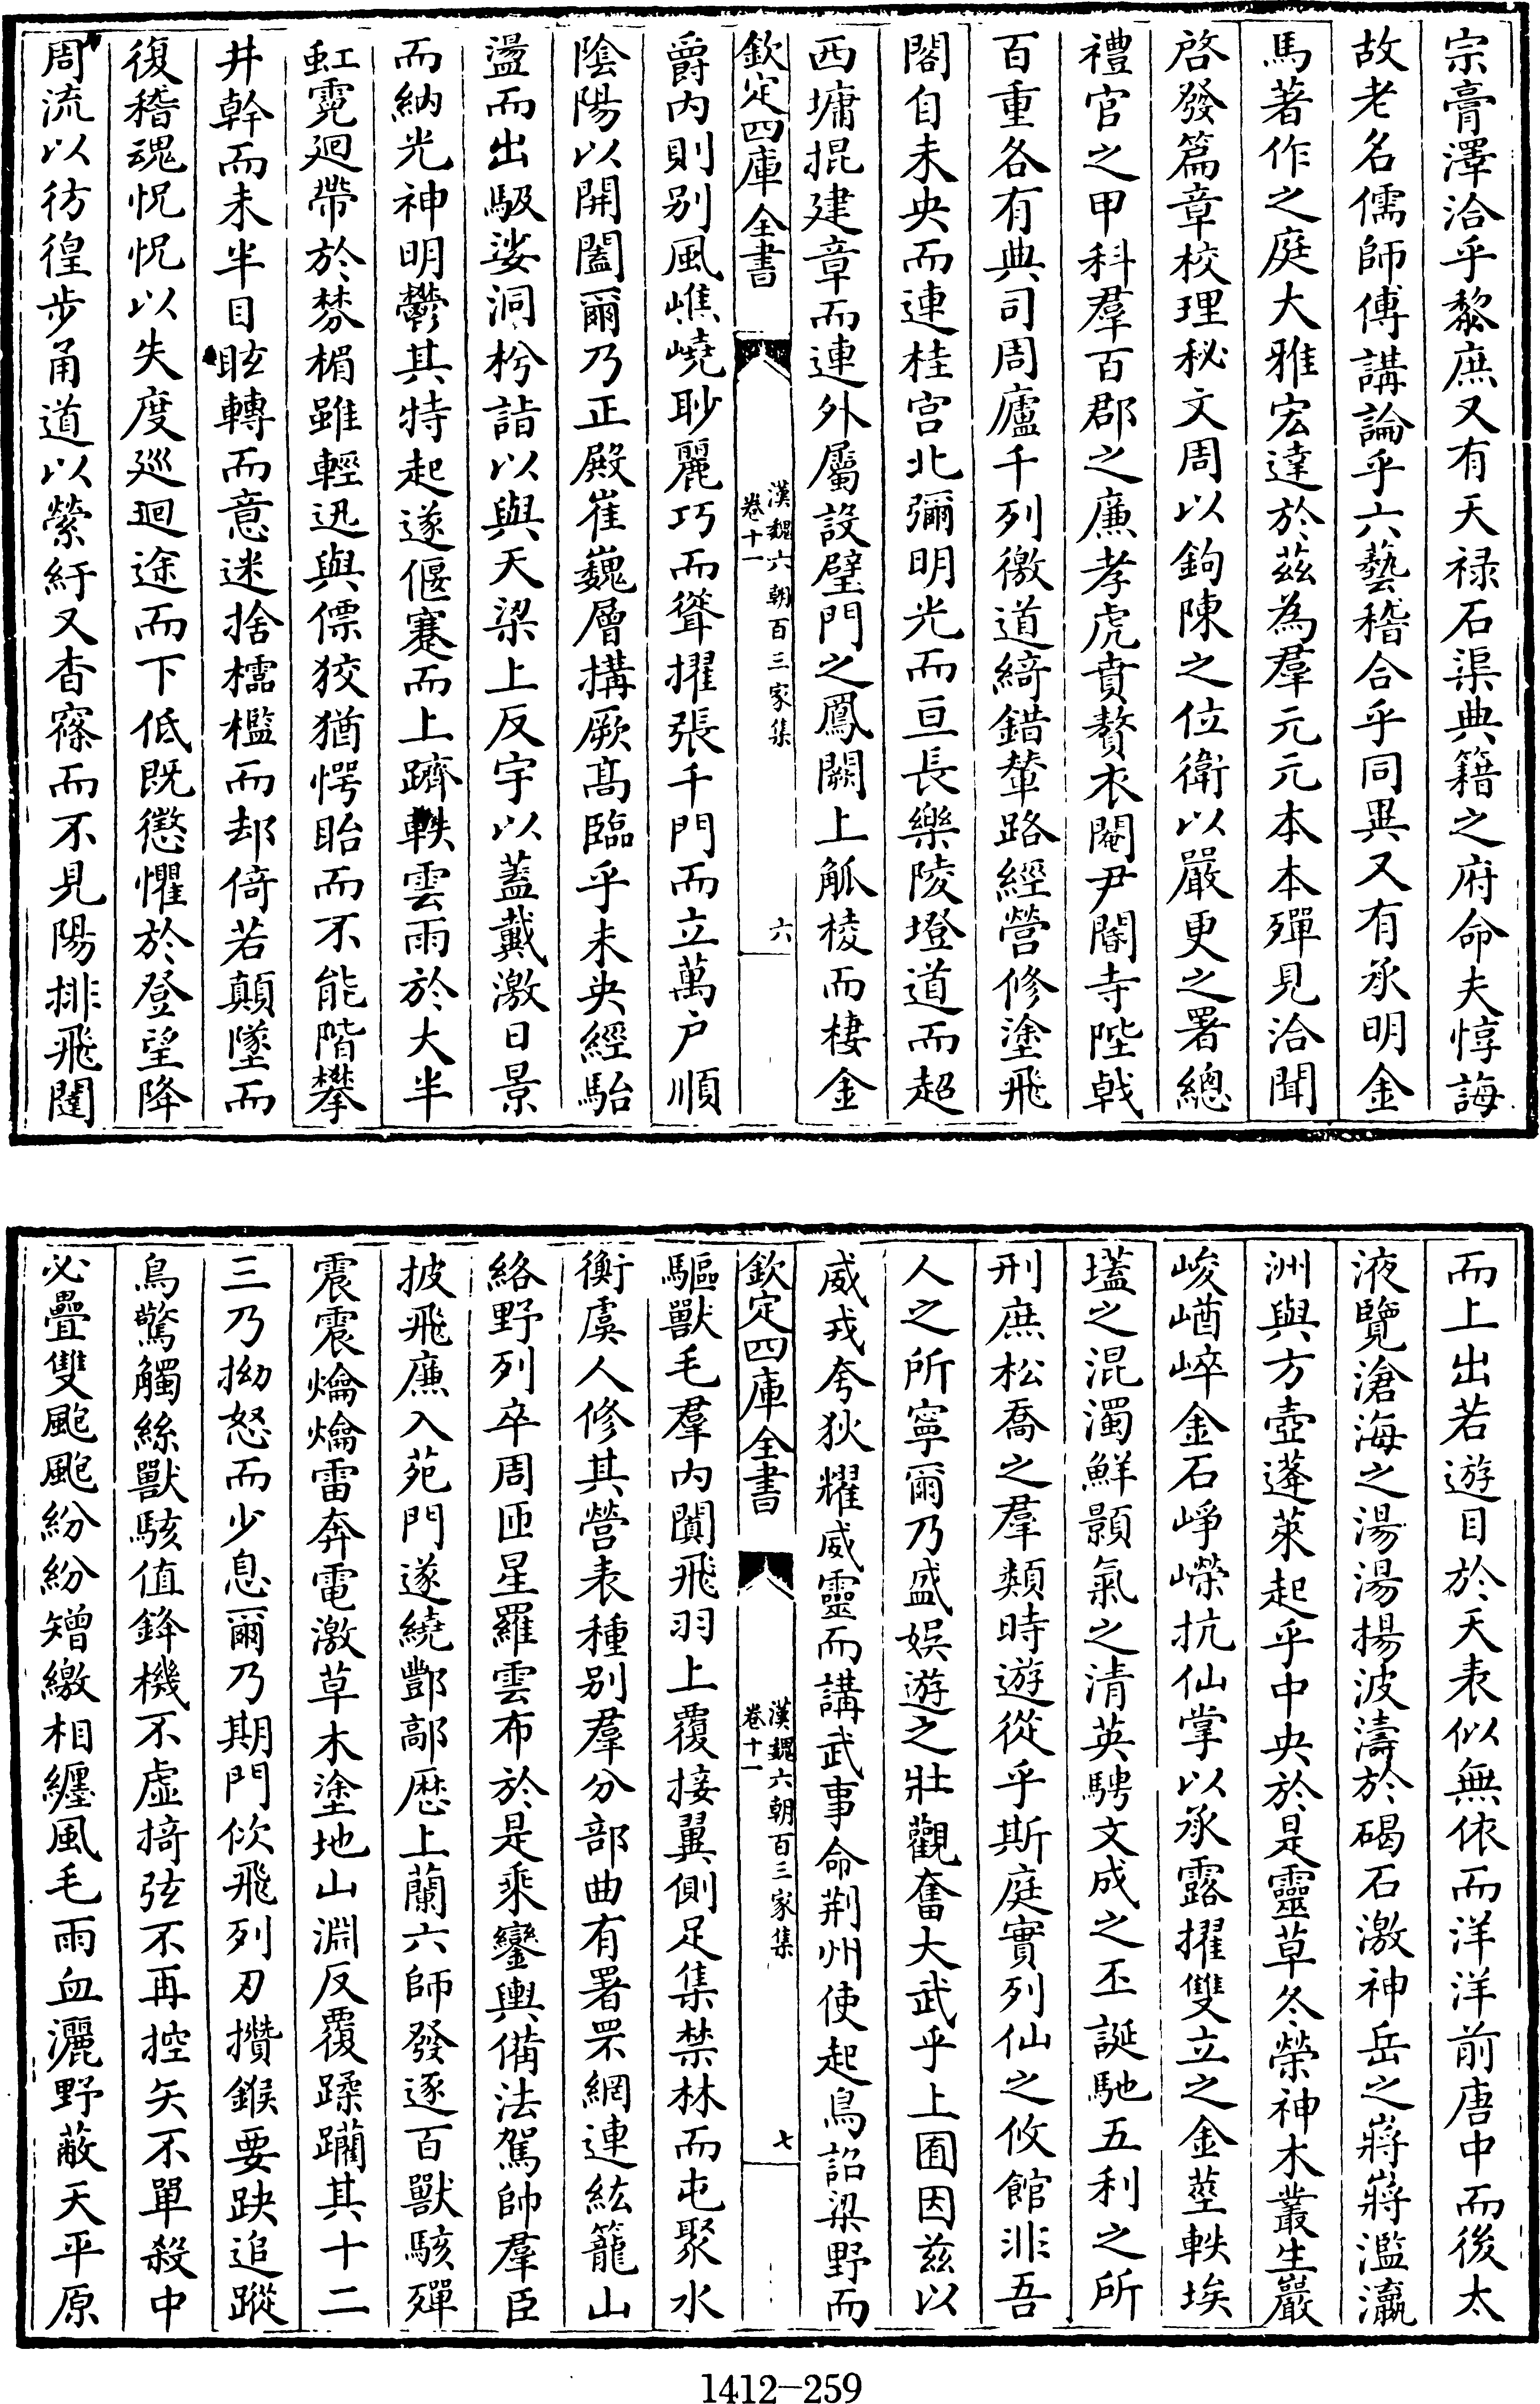 宗膏澤洽乎黎庶又有天禄石渠典籍之府命夫惇誨
故老名儒師傅講論乎六藝稽合乎同異又有承明金
馬著作之庭大雅宏達於兹為羣元元本本殫見洽聞
啓發篇章校理秘文周以鉤陳之位衛以嚴更之署總
禮官之甲科羣百郡之廉孝虎賁贅衣閹尹閽寺陛戟
百重各有典司周廬千列徼道綺錯輦路經營修塗飛
閣自未央而連桂宫北彌明光而亘長樂陵墱道而超
西墉掍建章而連外屬設璧門之鳳闕上觚稜而棲金
欽定四庫全書
漢魏六朝百三家集
卷十一
六
爵内則别風嶕嶢眇麗巧而聳擢張千門而立萬户順
陰陽以開闔爾乃正殿崔巍層搆厥髙臨乎未央經駘
盪而出馺娑洞枍詣以與天梁上反宇以蓋戴激日景
而納光神明鬱其特起遂偃蹇而上躋軼雲雨於大半
虹霓迴帶於棼楣雖輕迅與僄狡猶愕眙而不能階攀
井幹而未半目眩轉而意迷捨櫺檻而却倚若顛墜而
復稽魂怳怳以失度巡迴途而下低既懲懼於登望降
周流以彷徨步甬道以縈紆又杳窱而不見陽排飛闥
而上出若遊目於天表似無依而洋洋前唐中而後太
液覽滄海之湯湯揚波濤於碣石激神岳之嶈嶈濫瀛
洲與方壺蓬萊起乎中央於是靈草冬榮神木叢生巖
峻崷崪金石崢嶸抗仙掌以承露擢雙立之金莖軼埃
壒之混濁鮮顥氣之清英騁文成之丕誕馳五利之所
刑庶松喬之羣類時遊從乎斯庭實列仙之攸館非吾
人之所寧爾乃盛娱遊之壯觀奮大武乎上囿因兹以
威戎夸狄耀威靈而講武事命荆州使起鳥詔梁野而
欽定四庫全書
漢魏六朝百三家集
卷十一
七
驅獸毛羣内闐飛羽上覆接翼側足集禁林而屯聚水
衡虞人修其營表種别羣分部曲有署罘網連紘籠山
絡野列卒周匝星羅雲布於是乘鑾輿備法駕帥羣臣
披飛廉入苑門遂繞酆鄗歴上蘭六師發逐百獸駭殫
震震爚爚雷奔電激草木塗地山淵反覆蹂躪其十二
三乃拗怒而少息爾乃期門佽飛列刃攢鍭要趹追蹤
鳥驚觸絲獸駭值鋒機不虚掎弦不再控矢不單殺中
必疊雙飑飑紛紛矰繳相纒風毛雨血灑野蔽天平原
1412-259